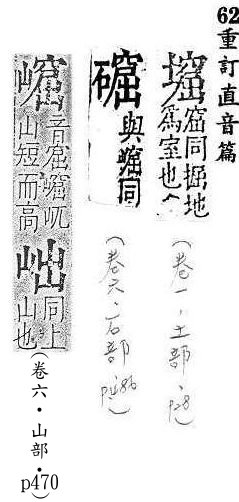 62重訂直音篇
堀窟同掘地
爲室也
(卷一.土部.p28)
𥕎與窟同
(卷六.石部p486)
崫音窟崫屼
山短而高
㞮同上
山也
(卷六.山部.p470)